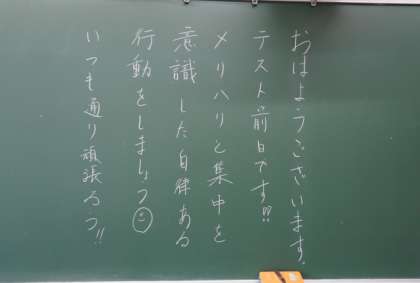 おはようございます。
テスト前日です!!
メリハリと集中を
意識した自律ある
行動をしましょう
いつも通り頑張ろう!!